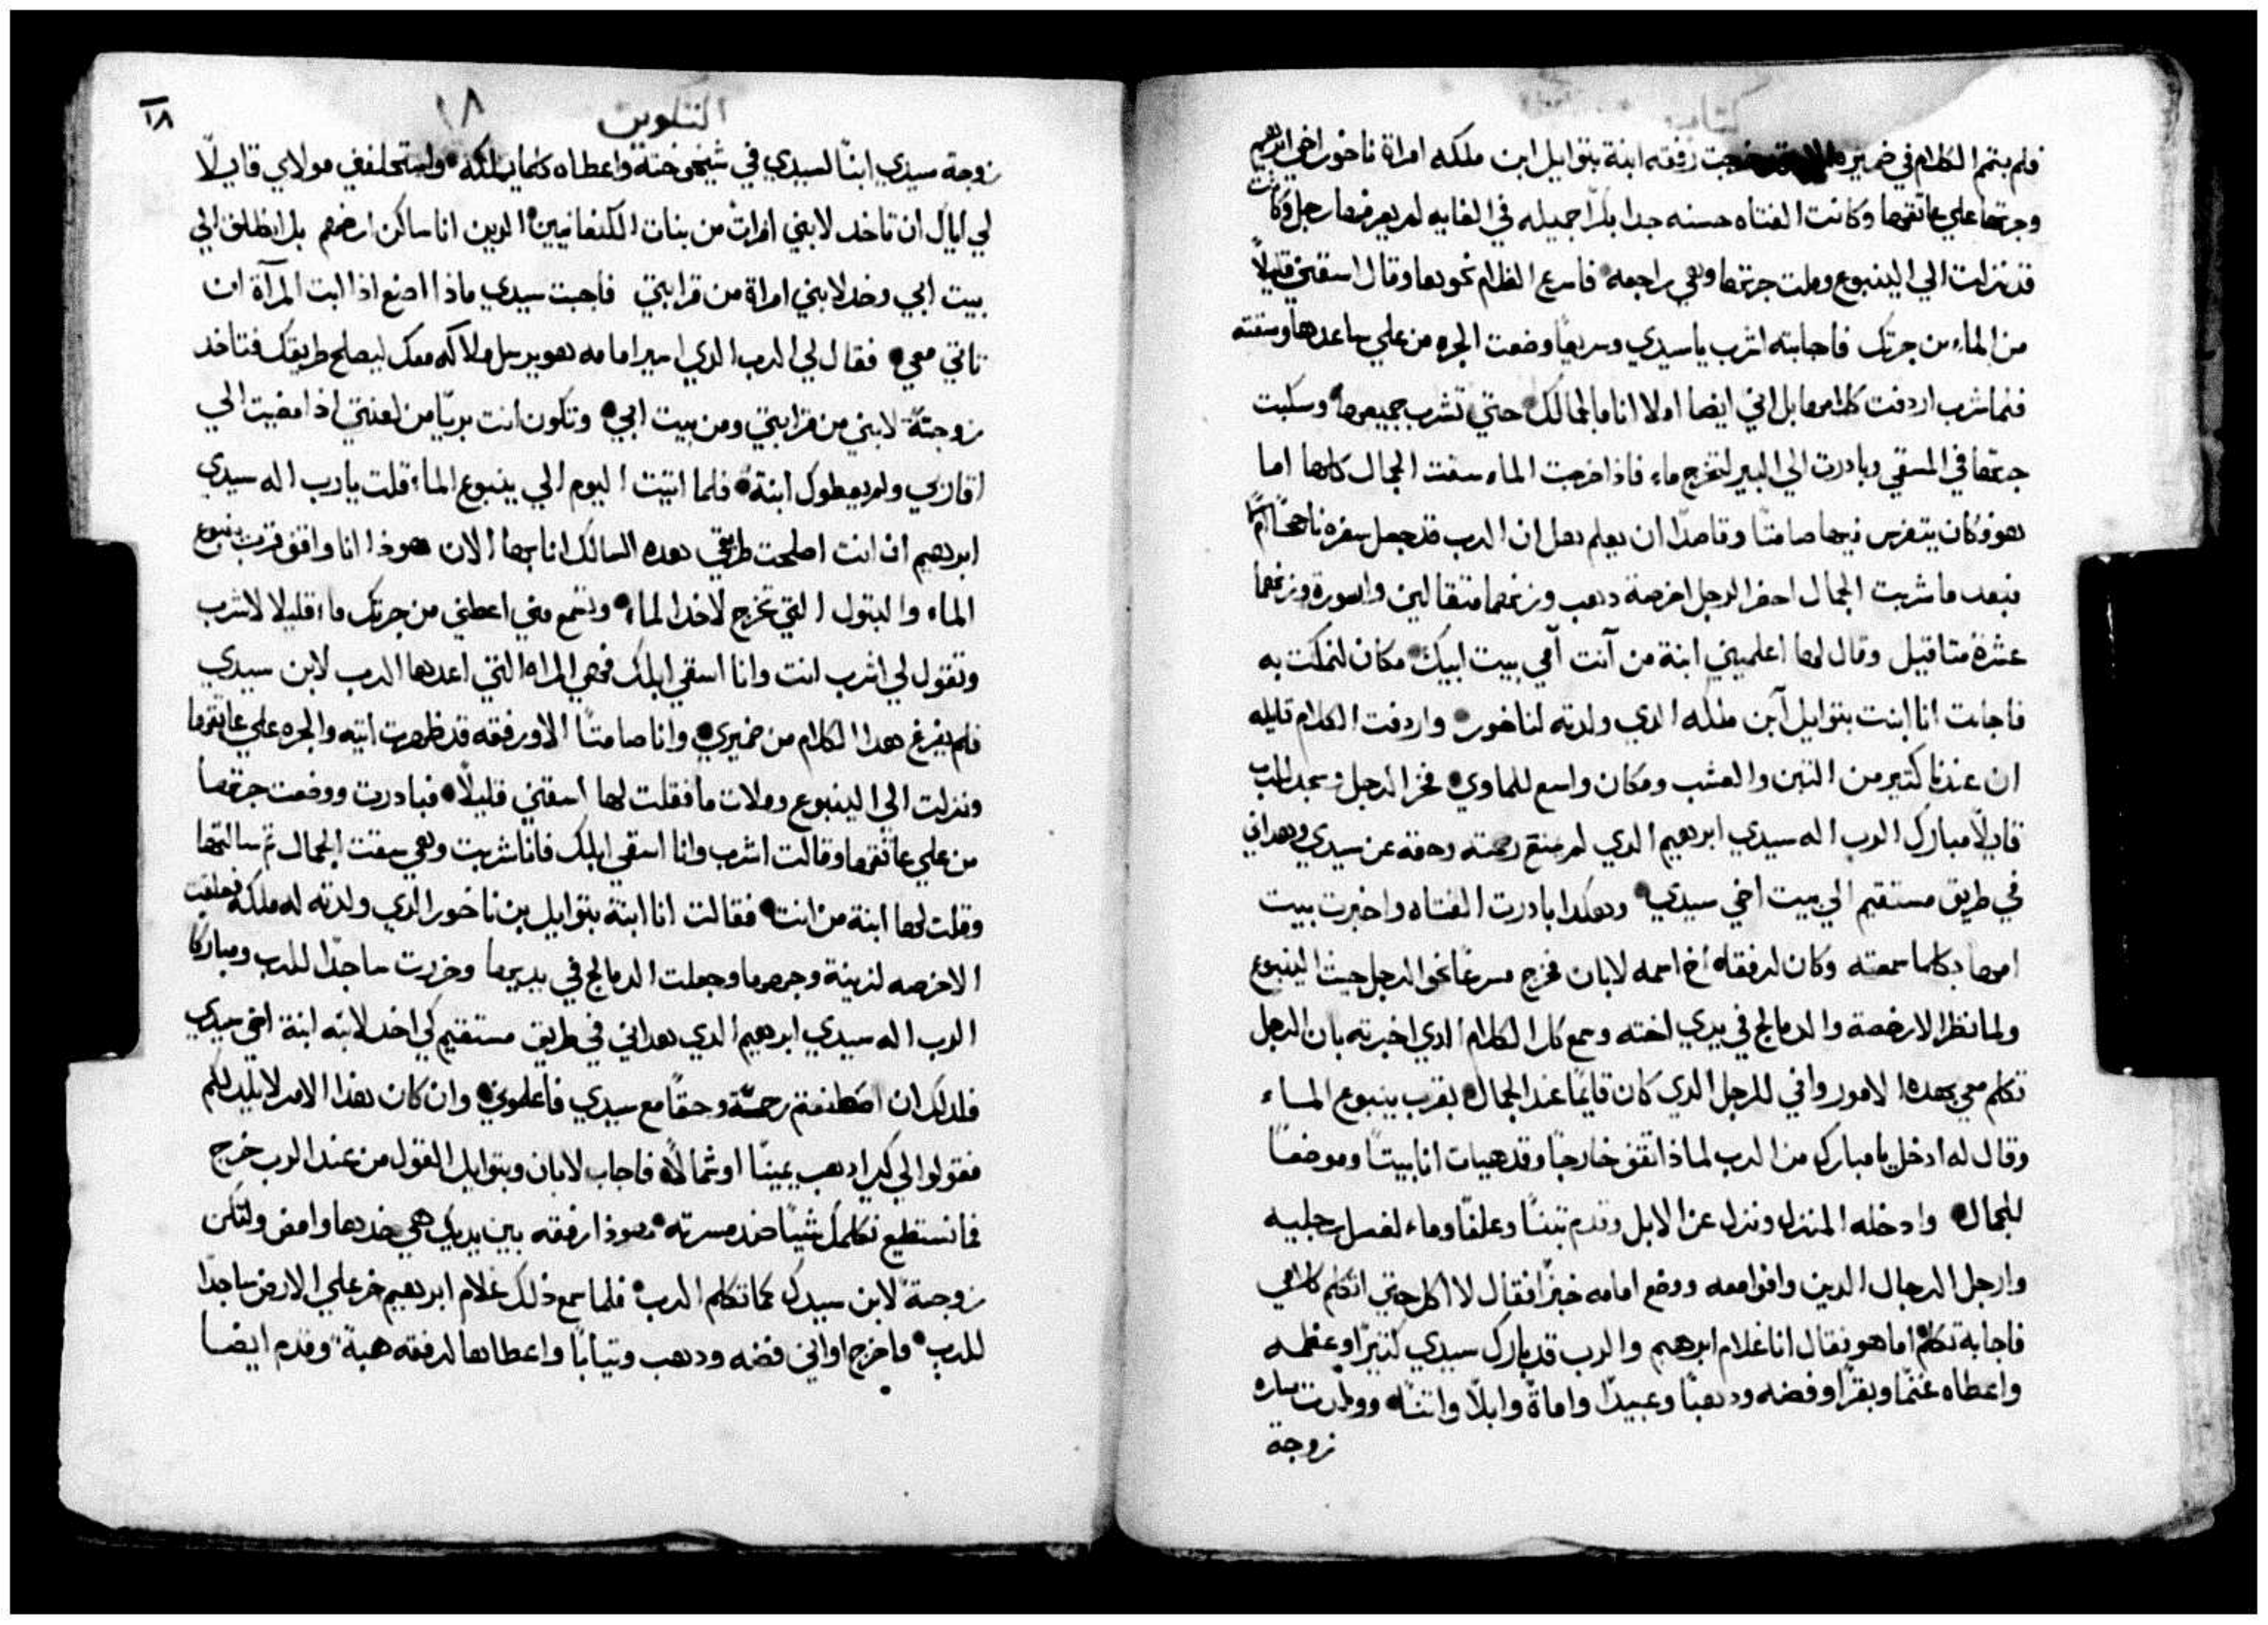 كتاب
فلم يتم الكلام في ضميره الا وقد خرجت رفقه ابنة بتوايل ابن ملكه امراة ناخور اخي ابرهيم
وجرتها علي عاتقها وكانت الفتاه حسنه جدا بكرا جميله في الغايه لم يعرفها رجل وكانت
قد نزلت الي الينبوع وملت جرتها وهي راجعه فاسرع الغلام نحوها وقال اسقني قليلاً
من الماء من جرتك فاجابته اشرب يا سيدي وسريعاً وضعت الجره من علي ساعدها وسقته
فلما شرب اردفت كلامها بل اني ايضا املا انا ما لجمالك حتي تشرب جميعها وسكبت
جرتها في المسقي وبادرت الي البير لتخرج ماء فاذا اخرجت الماء سقت الجمال كلها اما
هو فكان يتفرس فيها صامتا وقاصدا ان يعلم هل ان الرب قد جعل سفره ناجحًا ام لا
فبعد ما شربت الجمال احضر الرجل اخرصة دهب وزنهما متقالين واسورة وزنهما
عشرة متاقيل وقال لها اعلميني ابنة من آنت آفي بيت ابيك مكان لنمكت به
فاجابت انا ابنت بتوايل آبن ملكه الدي ولدته لناخور واردفت الكلام قايله
ان عندنا كتير من التبن والعشب ومكان واسع للماوي فخر الرجل وسجد للرب
قايلاً مبارك الرب اله سيدي ابرهيم الدي لم يمنع رحمته وحقه عن سيدي وهداني
في طريق مستقيم الي بيت اخي سيدي وهكدا بادرت الفتاه واخبرت ببيت
امها بكلما سمعته وكان لرفقاه اخ اسمه لابان فخرج مسرعًا نحو الرجل حيث الينبوع
ولما نظر الاخرصة والدمالج في يدي اخته وسمع كل الكلام الدي اخبرته بان الرجل
تكلم معي بهده الامور وافي للرجل الدي كان قايمًا عند الجمال بقرب ينبوع الماء
وقال له ادخل يا مبارك من الرب لماذا تقف خارجًا وقد هيات انا بيتًا وموضعًا
للجمال وادخله المنزل ونزل عن الابل وقدم تبنًا وعلفًا وماء لغسل رجليه
وارجل الرجال الدين وافوا معه ووضع امامه خبزًا فقال لا اكل حتي اتكلم كلامي
فاجابه تكلم اما هو فقال انا غلام ابرهيم والرب قد بارك سيدي كتيرًا وعظمه
واعطاه غنمًا وبقرًا وفضه ودهبًا وعبيدًا واماة وابلاً واتنًا وولدت ساره
زوجة
التكوين ١٨
١٨
زوجة سيدي ابنًا لسيدي في شيخوخته واعطاه كلما يملكه واستحلفني مولاي قايلاً
لي اياك ان تاخد لابني امراة من بنات الكنعانيين الدين انا ساكن ارضهم بل انطلق الي
بيت ابي وخد لابني امراة من قرابتي فاجبت سيدي ماذا اصنع اذا ابت المرآة ان
تاتي معي فقال لي الرب الدي اسير امامه هو يرسل ملاكه معك ليصلح طريقك فتاخد
زوجتةً لابني من قرابتي ومن بيت ابي وتكون انت بريًا من لعنتي اذا مضيت الي
اقاربي ولم يعطوك ابنة فلما اتيت اليوم الي ينبوع الماء قلت يا رب اله سيدي
ابرهيم ان انت اصلحت طريقي هده السالك انا بها الان هوذا انا واقف قرب ينبوع
الماء والبتول التي تخرج لاخد الماء وتسمع مني اعطني من جرتك ماء قليلا لاشرب
وتقول لي اشرب انت وانا اسقي ابلك فهي المراه التي اعدها الرب لابن سيدي
فلم يفرغ هدا الكلام من ضميري وانا صامتًا الا ورفقه قد ظهرت اتيه والجره علي عاتقها
ونزلت الي الينبوع وملات ما فقلت لها اسقني قليلاً فبادرت ووضعت جرتها
من علي عاتقها وقالت اشرب وانا اسقي ابلك فانا شربت وهي سقت الجمال تم سالتها
وقلت لها ابنة من انت فقالت انا ابنة بتوايل بن ناخور الدي ولدته له ملكه فعلقت
الاخرصه لزينة وجهها وجعلت الدمالج في يديها وخررت ساجدًا للرب ومباركًا
الرب اله سيدي ابرهيم الدي هداني في طريق مستقيم كي اخد لابنه ابنة اخي سيدي
فلدلك ان اصطنعتم رحمتة وحقًا مع سيدي فاعلموني وان كان هذا الامر لا يليد لكم
فقولوا لي كي ادهب يمينًا او شمالاً فاجاب لابان وبتوايل القول من عند الرب خرج
فما نستطيع نكلمك شيئًا ضد مسرته هوذا رفقه بين يديك هي خدها وامض ولتكن
زوجةً لابن سيدك كما تكلم الرب فلما سمع ذلك غلام ابرهيم خر علي الارض ساجدًا
للرب واخرج اواني فضه ودهب وتيابًا واعطاها لرفقه هبةً وقدم ايضا